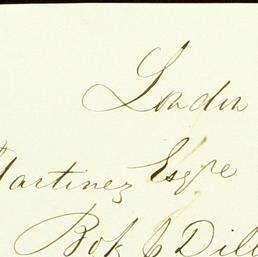 London
Martinez Esqre
Bot 6 Dill